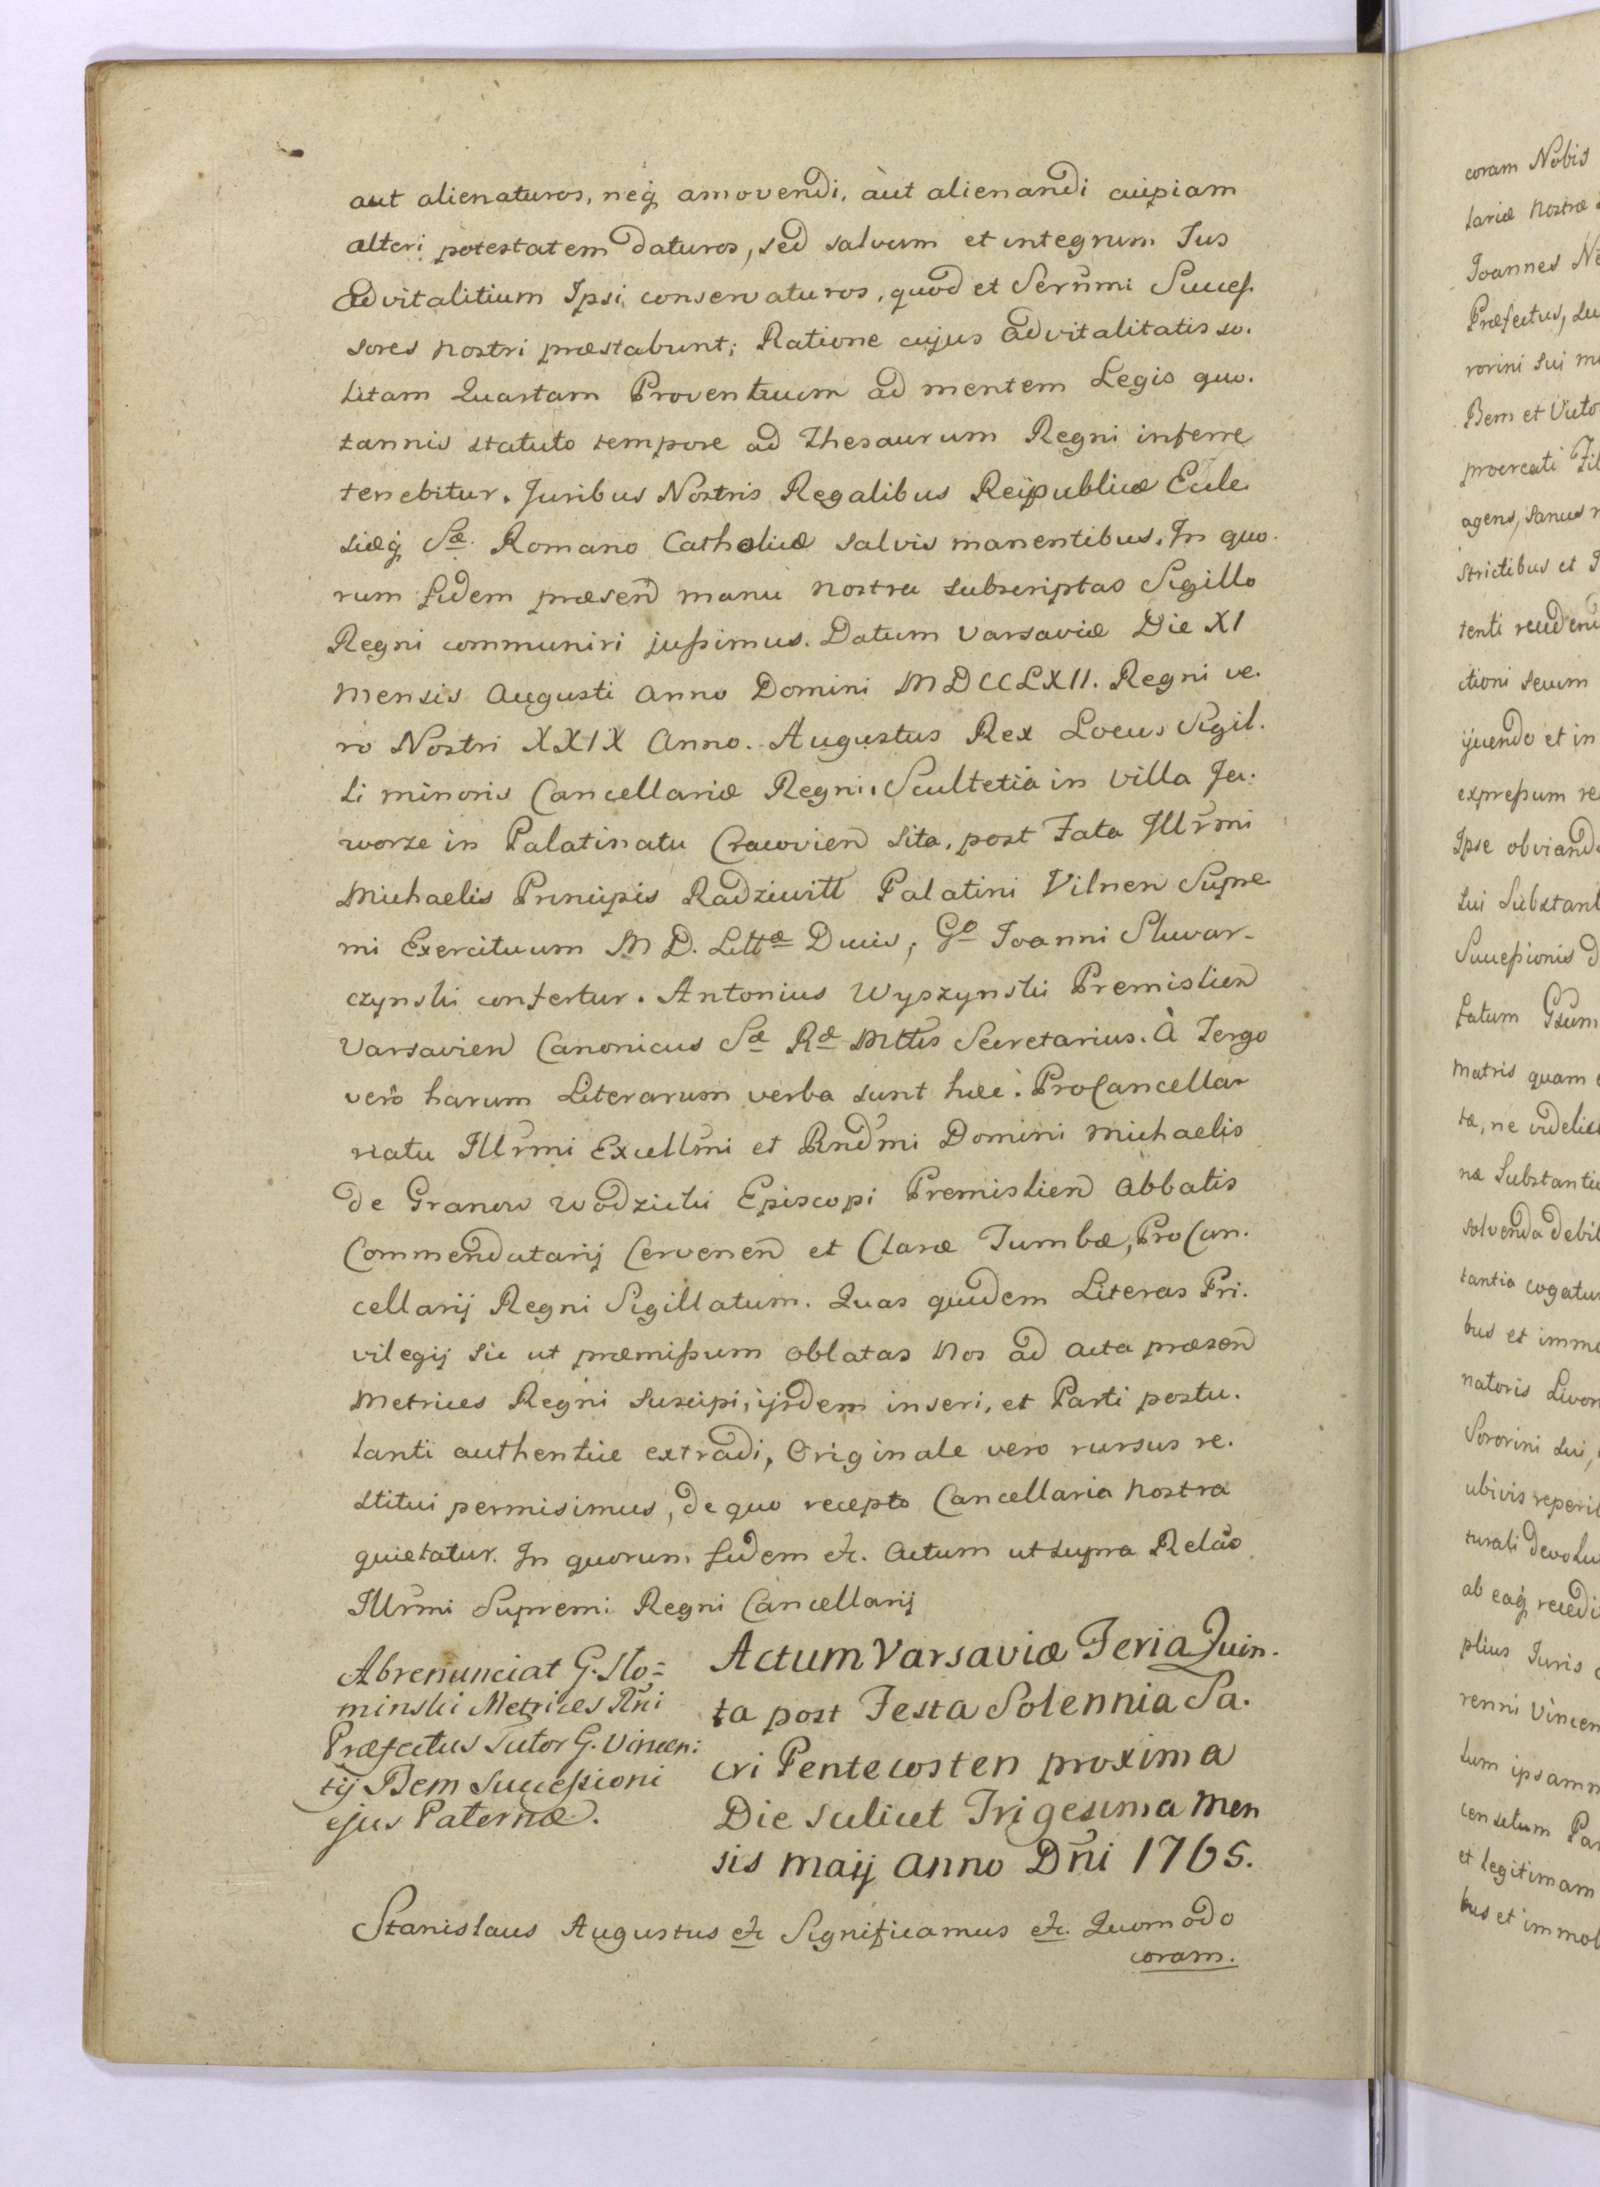 aut alienaturos, neq₃ amovendi, àut alienandi cuipiam
alteri potestatem daturos, sed salvum et integrum Jus
advitalitium Ipsi conservaturos, quod et Serm̃i Succes-
sores nostri præstabunt; Ratione cujus advitalitatis so-
litam Quartam Proventuum ad mentem Legis quo-
tannis statuto tempore ad Thesaurum Regni inferre
tenebitur. Juribus Nostris Regalibus Reipublicæ Eccle-
siæq₃ Sæ Romano Catholicæ salvis manentibus. In quo-
rum fidem præsen̄ manu nostra subscriptas Sigillo
Regni communiri jussimus. Datum Varsaviæ Die XI
Mensis Augusti Anno Domini MDCCLXII. Regni ve-
ro Nostri XXIX Anno. Augustus Rex Locus Sigil-
li minoris Cancellariæ Regni. Scultetia in Villa Ja-
worze in Palatinatu Cracovien̄ sita, post Fata Illrm̃i
Michaelis Principis Radziwiłł Palatini Vilnen̄ Supre-
mi Exercituum M D. Littæ Ducis, Gº Joanni Skwar-
czynski confertur. Antonius Wyszynski Premislien̄
Varsavien̄ Canonicus Sæ Ræ Mttis Secretarius. À Tergo
verò harum Literarum verba sunt hæc: ProCancella-
riatu Illrm̃i Excellm̃i et Rndm̃i Domini Michaelis
de Granow Wodzicki Episcopi Premislien̄ Abbatis
Commendatarij Cervenen̄ et Claræ Tumbæ, ProCan-
cellarij Regni Sigillatum. Quas quidem Literas Pri-
vilegij sic ut præmissum oblatas Nos ad Acta præsen̄
Metrices Regni suscipi, ijsdem inseri, et Parti postu-
lanti authentice extradi, Originale vero rursus re-
stitui permisimus, de quo recepto Cancellaria nostra
quietatur. In quorum fidem etc. Actum ut supra Relão
Illrm̃i Supremi Regni Cancellarij
Abrenunciat G. Slo=
minski Metrices Rñi
Præfectus Tutor G. Vincen:
tij Bem Successioni
ejus Paternæ.
Actum Varsaviæ Feria Quin-
ta post Festa Solennia Sa-
cri Pentecosten proxima
Die scilicet Trigesima Men
sis Maij Anno Dñi 1765.
Stanislaus Augustus etc Significamus etc. Quomodo
coram.
coram Nobis
lariæ Nostræ
Joannes
Præfectus,
rorini sui
Bem et
procreati
agens, sanus
strictibus et
tenti
ctioni seum
ijuendo et in
expressum re
Ipse obviand
sui Substant
Successionis
fatum Gsum
Matris quam
ta, ne videlic
næ Substanti
solvenda debit
tantia cogatur
bus et immo
natoris Livon
Sororini sui,
ubivis reperi
turali devolu
ab eaq₃ recedi
plius Juris
renni Vincen
tum ipsam
censetum
et legitimam
bus et immob